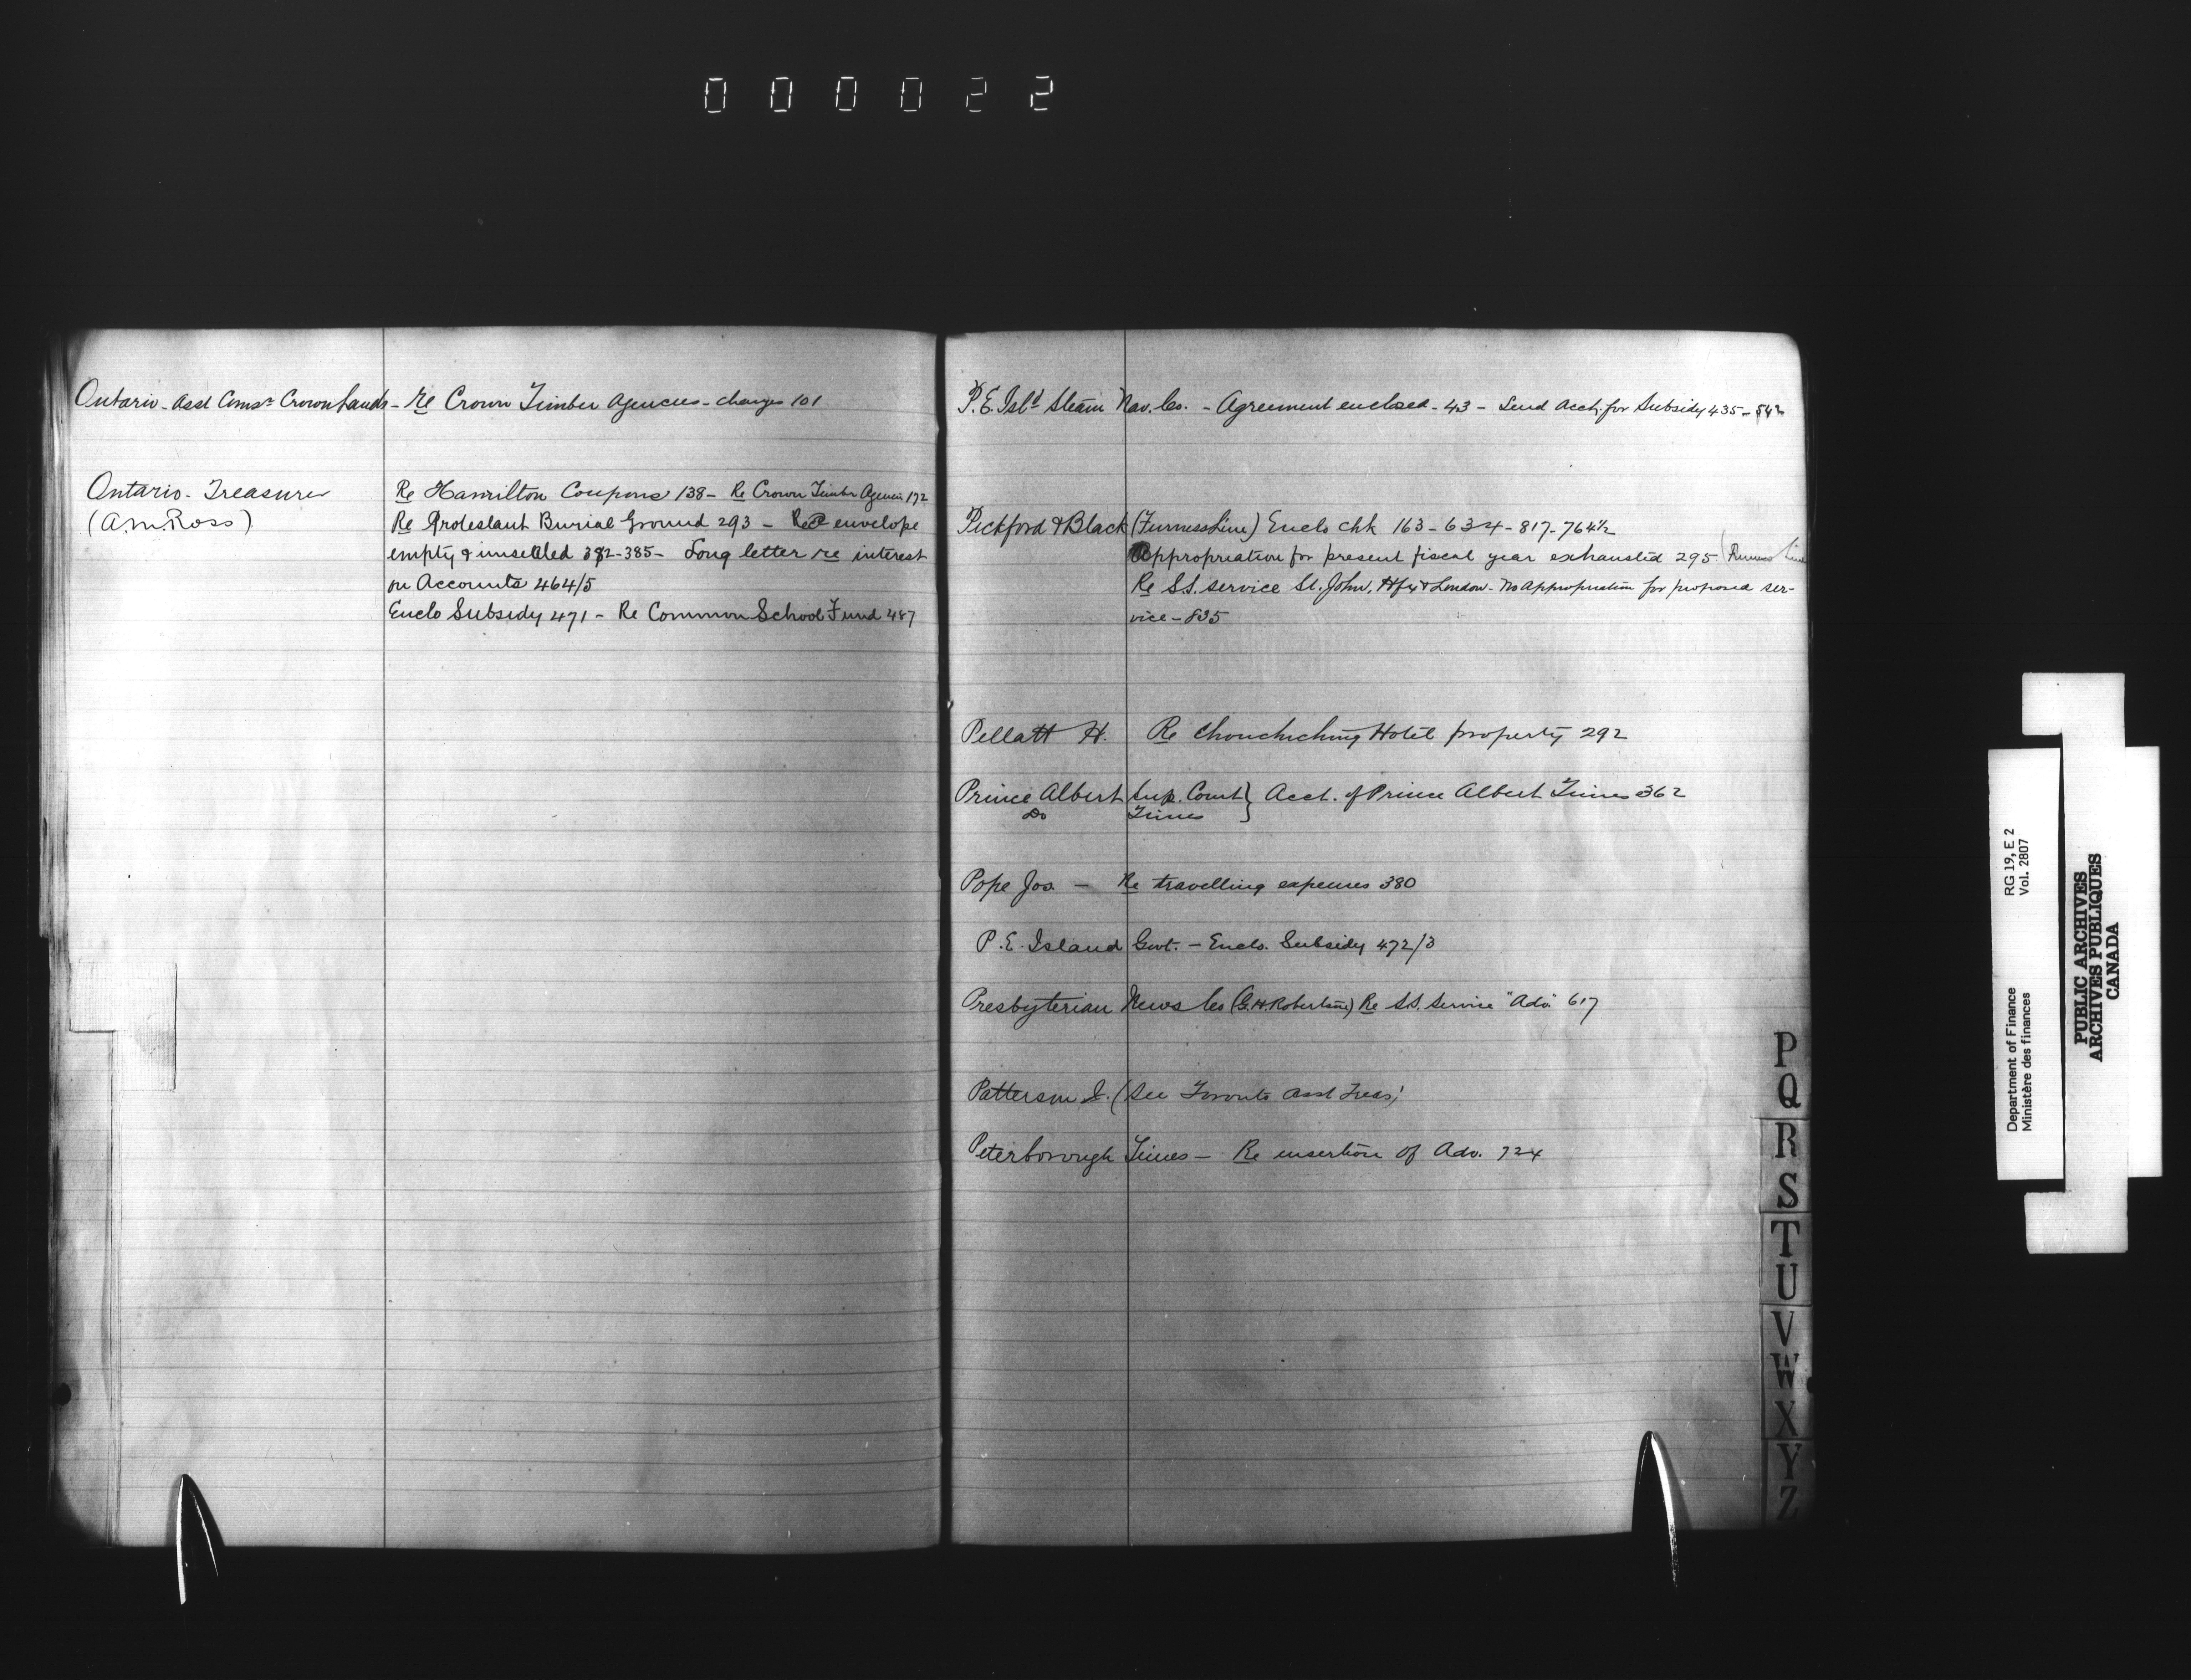 000022
Ontario - Asst Comsr Crown Lands - Re Crown Timber Agencies - charges 101
Ontario - Treasurer
(A.M. Ross)
Re Hamilton Coupons 138 - Re Crown Timber Agencies 172
Re Protestant Burial Ground 293 - Rec envelope
empty & unsealed 382-385 - Long letter re interest
on Accounts 464/5
Enclo Subsidy 471 - Re Common School Fund 487
P.E. Isld Steam Nav. Co. - Agreement enclosed - 43 - Send Acct. for Subsidy 435 - 542
Pickford & Black (Furness Line) Enclo chk 163 - 634 - 817 - 764½
Appropriation for present fiscal year exhausted 295 (Furness Line
Re S.S. service St. John, Hfx & London - No Appropriation for proposed ser-
vice - 835
Pellatt H. Re Chouchiching Hotel property 292
Prince Albert Sup. Court } Acct. of Prince Albert Times 362
Do Times
Pope Jos. - Re travelling expenses 380
P.E. Island Govt. - Enclo. Subsidy 472/3
Presbyterian News Co (G.H. Robertson) Re S.S. Service "Adv." 617
Patterson (See Toronto Asst Treas)
Peterborough Times - Re insertion of Adv. 724
P
Q
R
S
T
U
V
W
X
Y
Z
Department of Finance RG 19, E 2
Ministère des finances Vol. 2807
PUBLIC ARCHIVES
ARCHIVES PUBLIQUES
CANADA